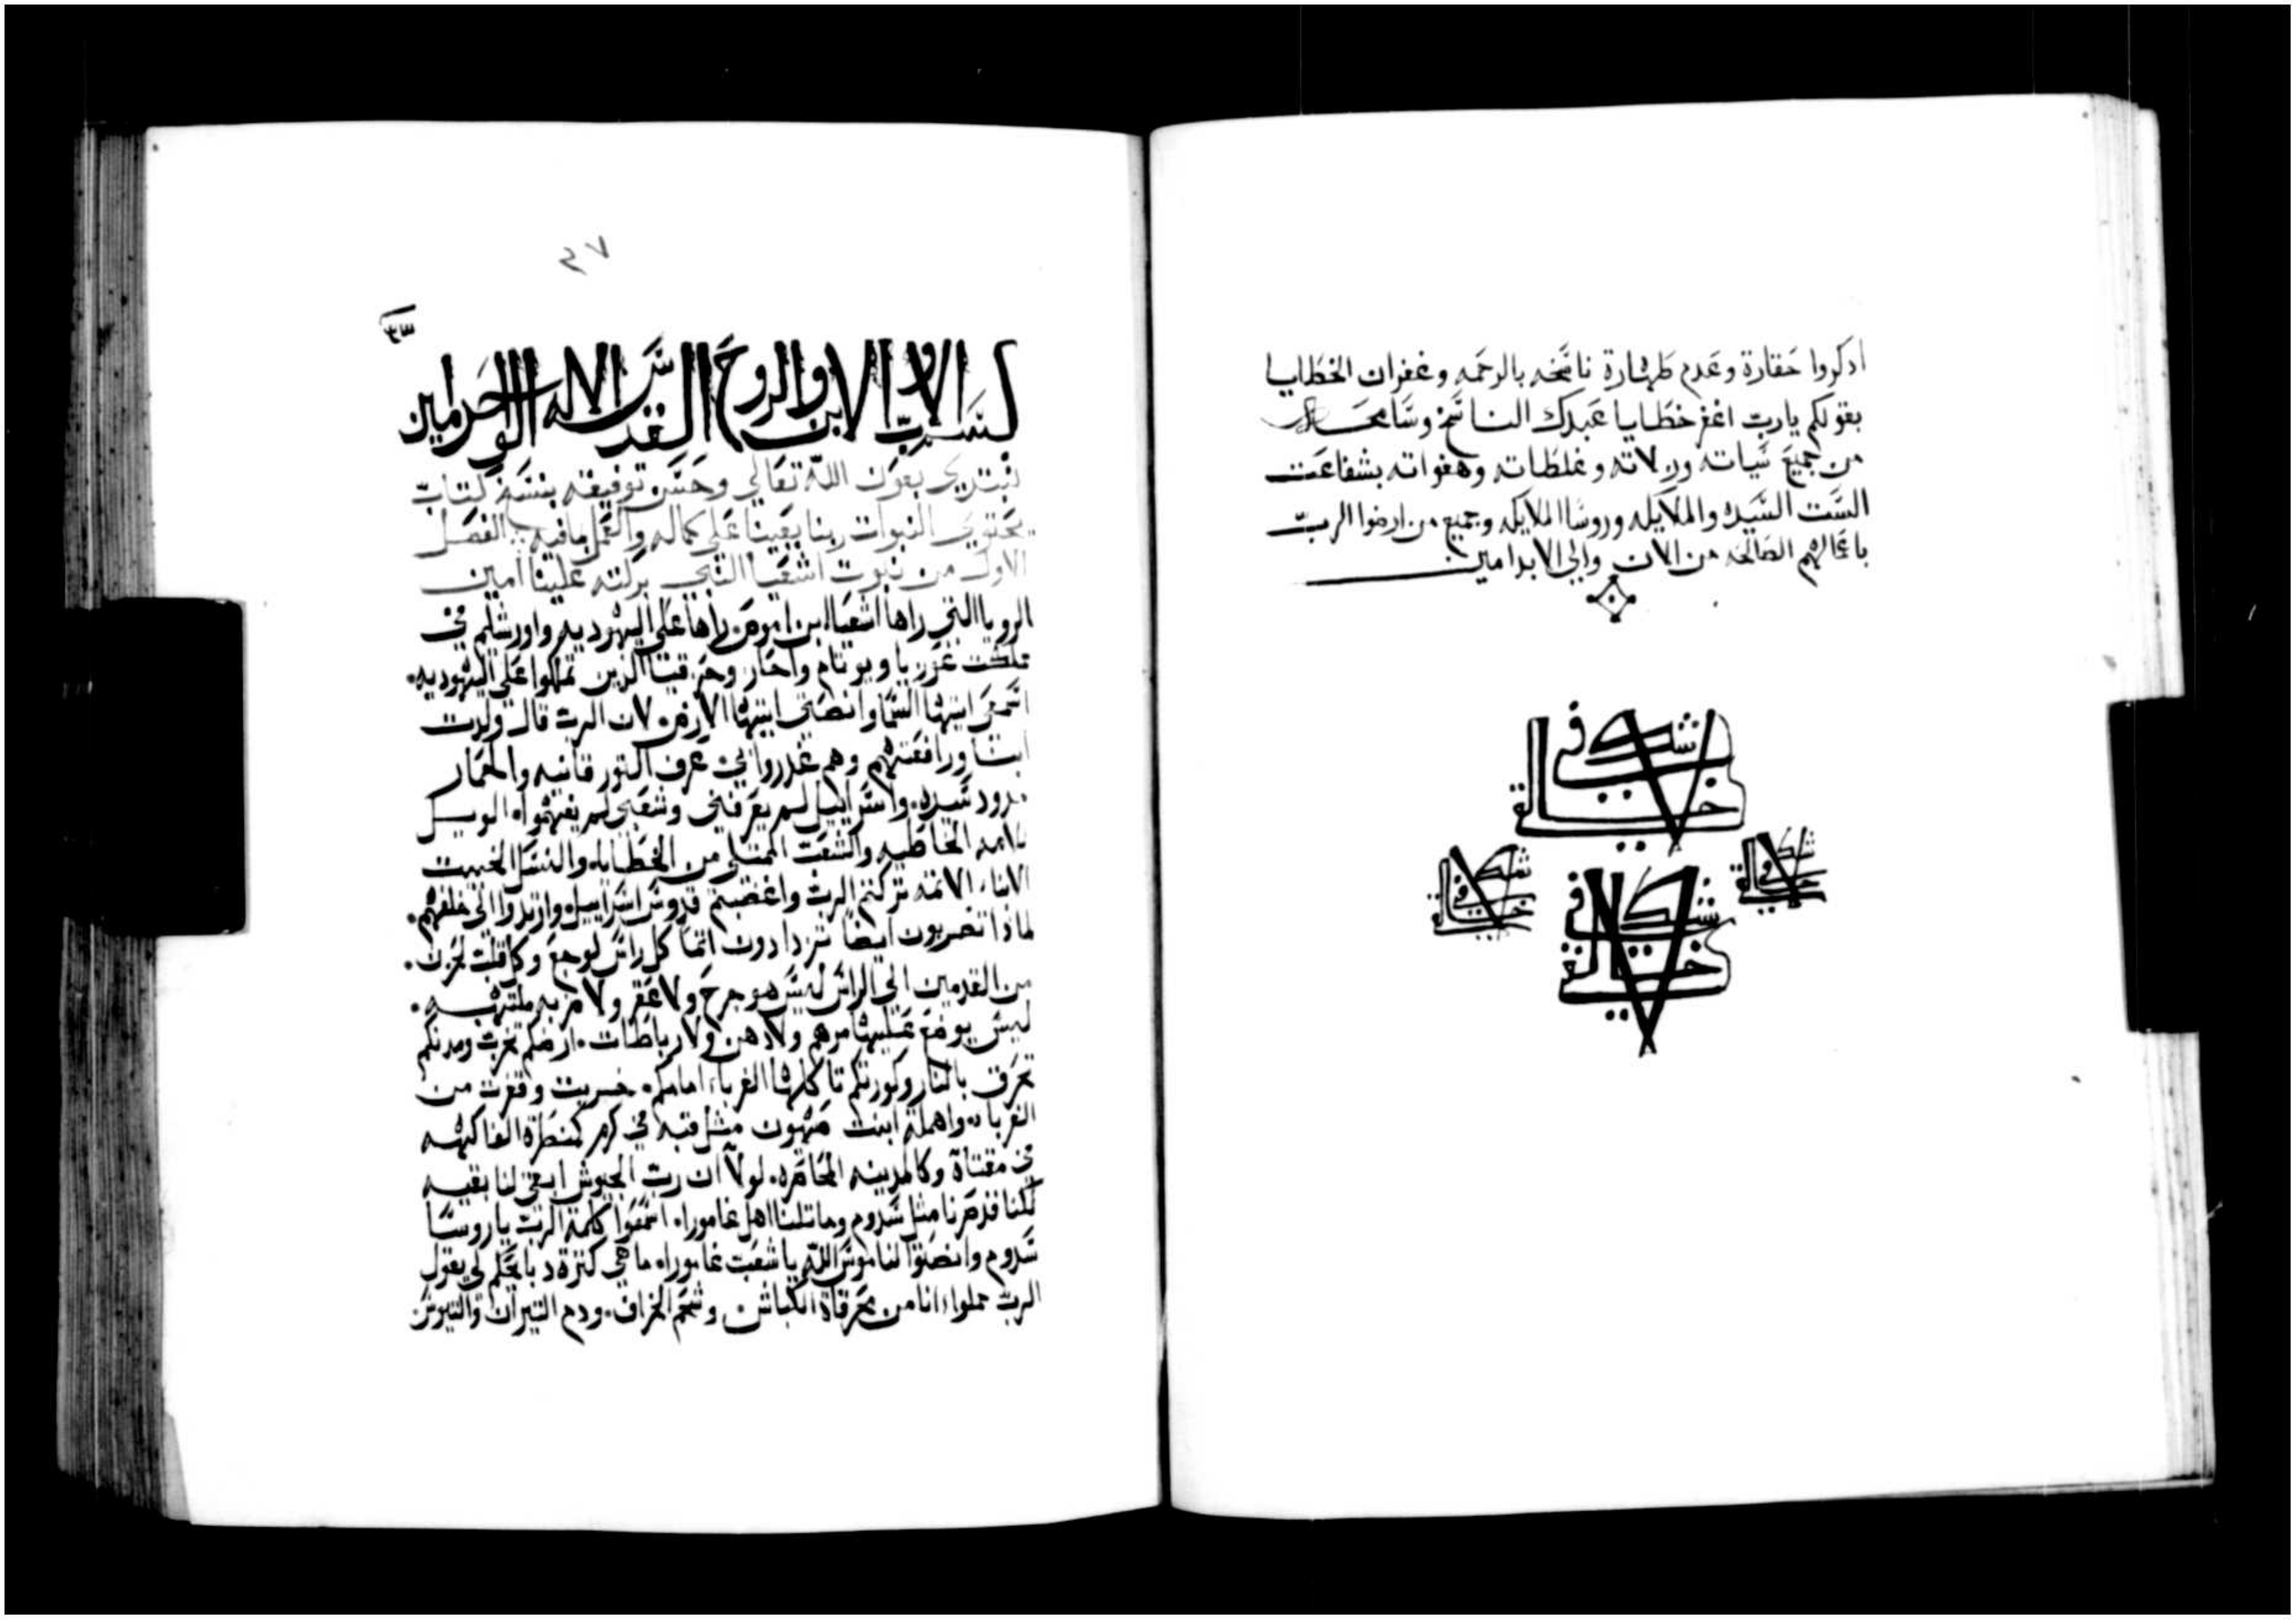 ادكروا حقارة وعدم طهارة ناسخه بالرحمه وغفران الخطايا
بقولكم يارب اغفر خطايا عبدك الناسخ وسامحه
من جميع سيات وزلاته وغلطاته وهفواته بشفاعت
الست السيده والملايكه وروسا الملايكه وجميع من ارضوا الرب
باعمالهم الصالحه من الان والي الابد امين
شكت في
خالقي
شكت في
خالقي
شكت في
خالقي
شكت في
خالقي
٢٧
بسم الاب والابن والروح القدس الاله الواحد امين
نبتدي بعون الله تعالي وحسن توفيقه بنسخ كتاب
يحتوي النبوات ربنا يعيننا علي كماله والعمل بما فيه الفصل
الاول من نبوت اشعيا النبي بركته علينا امين
الرويا التي راها اشعيا ابن اموص راها علي اليهوديه واورشليم في
مملكت عزريا ويوتام واحاز وحزقيا الذين تملكوا علي اليهوديه.
اسمعي ايتها السما وانصتي ايتها الارض. لان الرب قال ولدت
ابنا ورافعتهم وهم غدروا بي عرف الثور قانيه والحمار
مدود سيده. واسراييل لم يعرفني وشعبي لم يفهموا. الويل
للامه الخاطيه والشعب الممتلي من الخطايا. والنسل الخبيث
الابناء الاثمه تركتم الرب واغضبتم قدوس اسراييل. وارتدوا الي خلفهم.
لماذا تضربون ايضا تزدادون اثما كل راس لوجع وكل قلب لحزن.
من القدمين الي الراس ليس هو جرح ولا عقر ولا ضربه ملتهبه.
ليس يوضع عليها مرهم ولا دهن ولا رباطات. ارضكم تخرب ومدنكم
تحرق بالنار وكورتكم تاكلها الغرباء امامكم. خربت وقفرت من
الغربا. واهملة ابنت صهيون مثل قبه في كرم كمنطرة الفاكهه
في مقتاة وكالمدينه المحاصره. لولا ان رب الجيوش ابقي لنا بقيه
لكنا قد صرنا مثل سدوم وماتلنا اهل غامورا. اسمعوا كلمة الرب يا روسا
سدوم وانصتوا لناموس الله يا شعب غامورا. ما هي كثرة دبايحكم لي يقول
الرب مملوا انا من محرقاة الكباش. وشحم الخراف. ودم التيران والتيوس